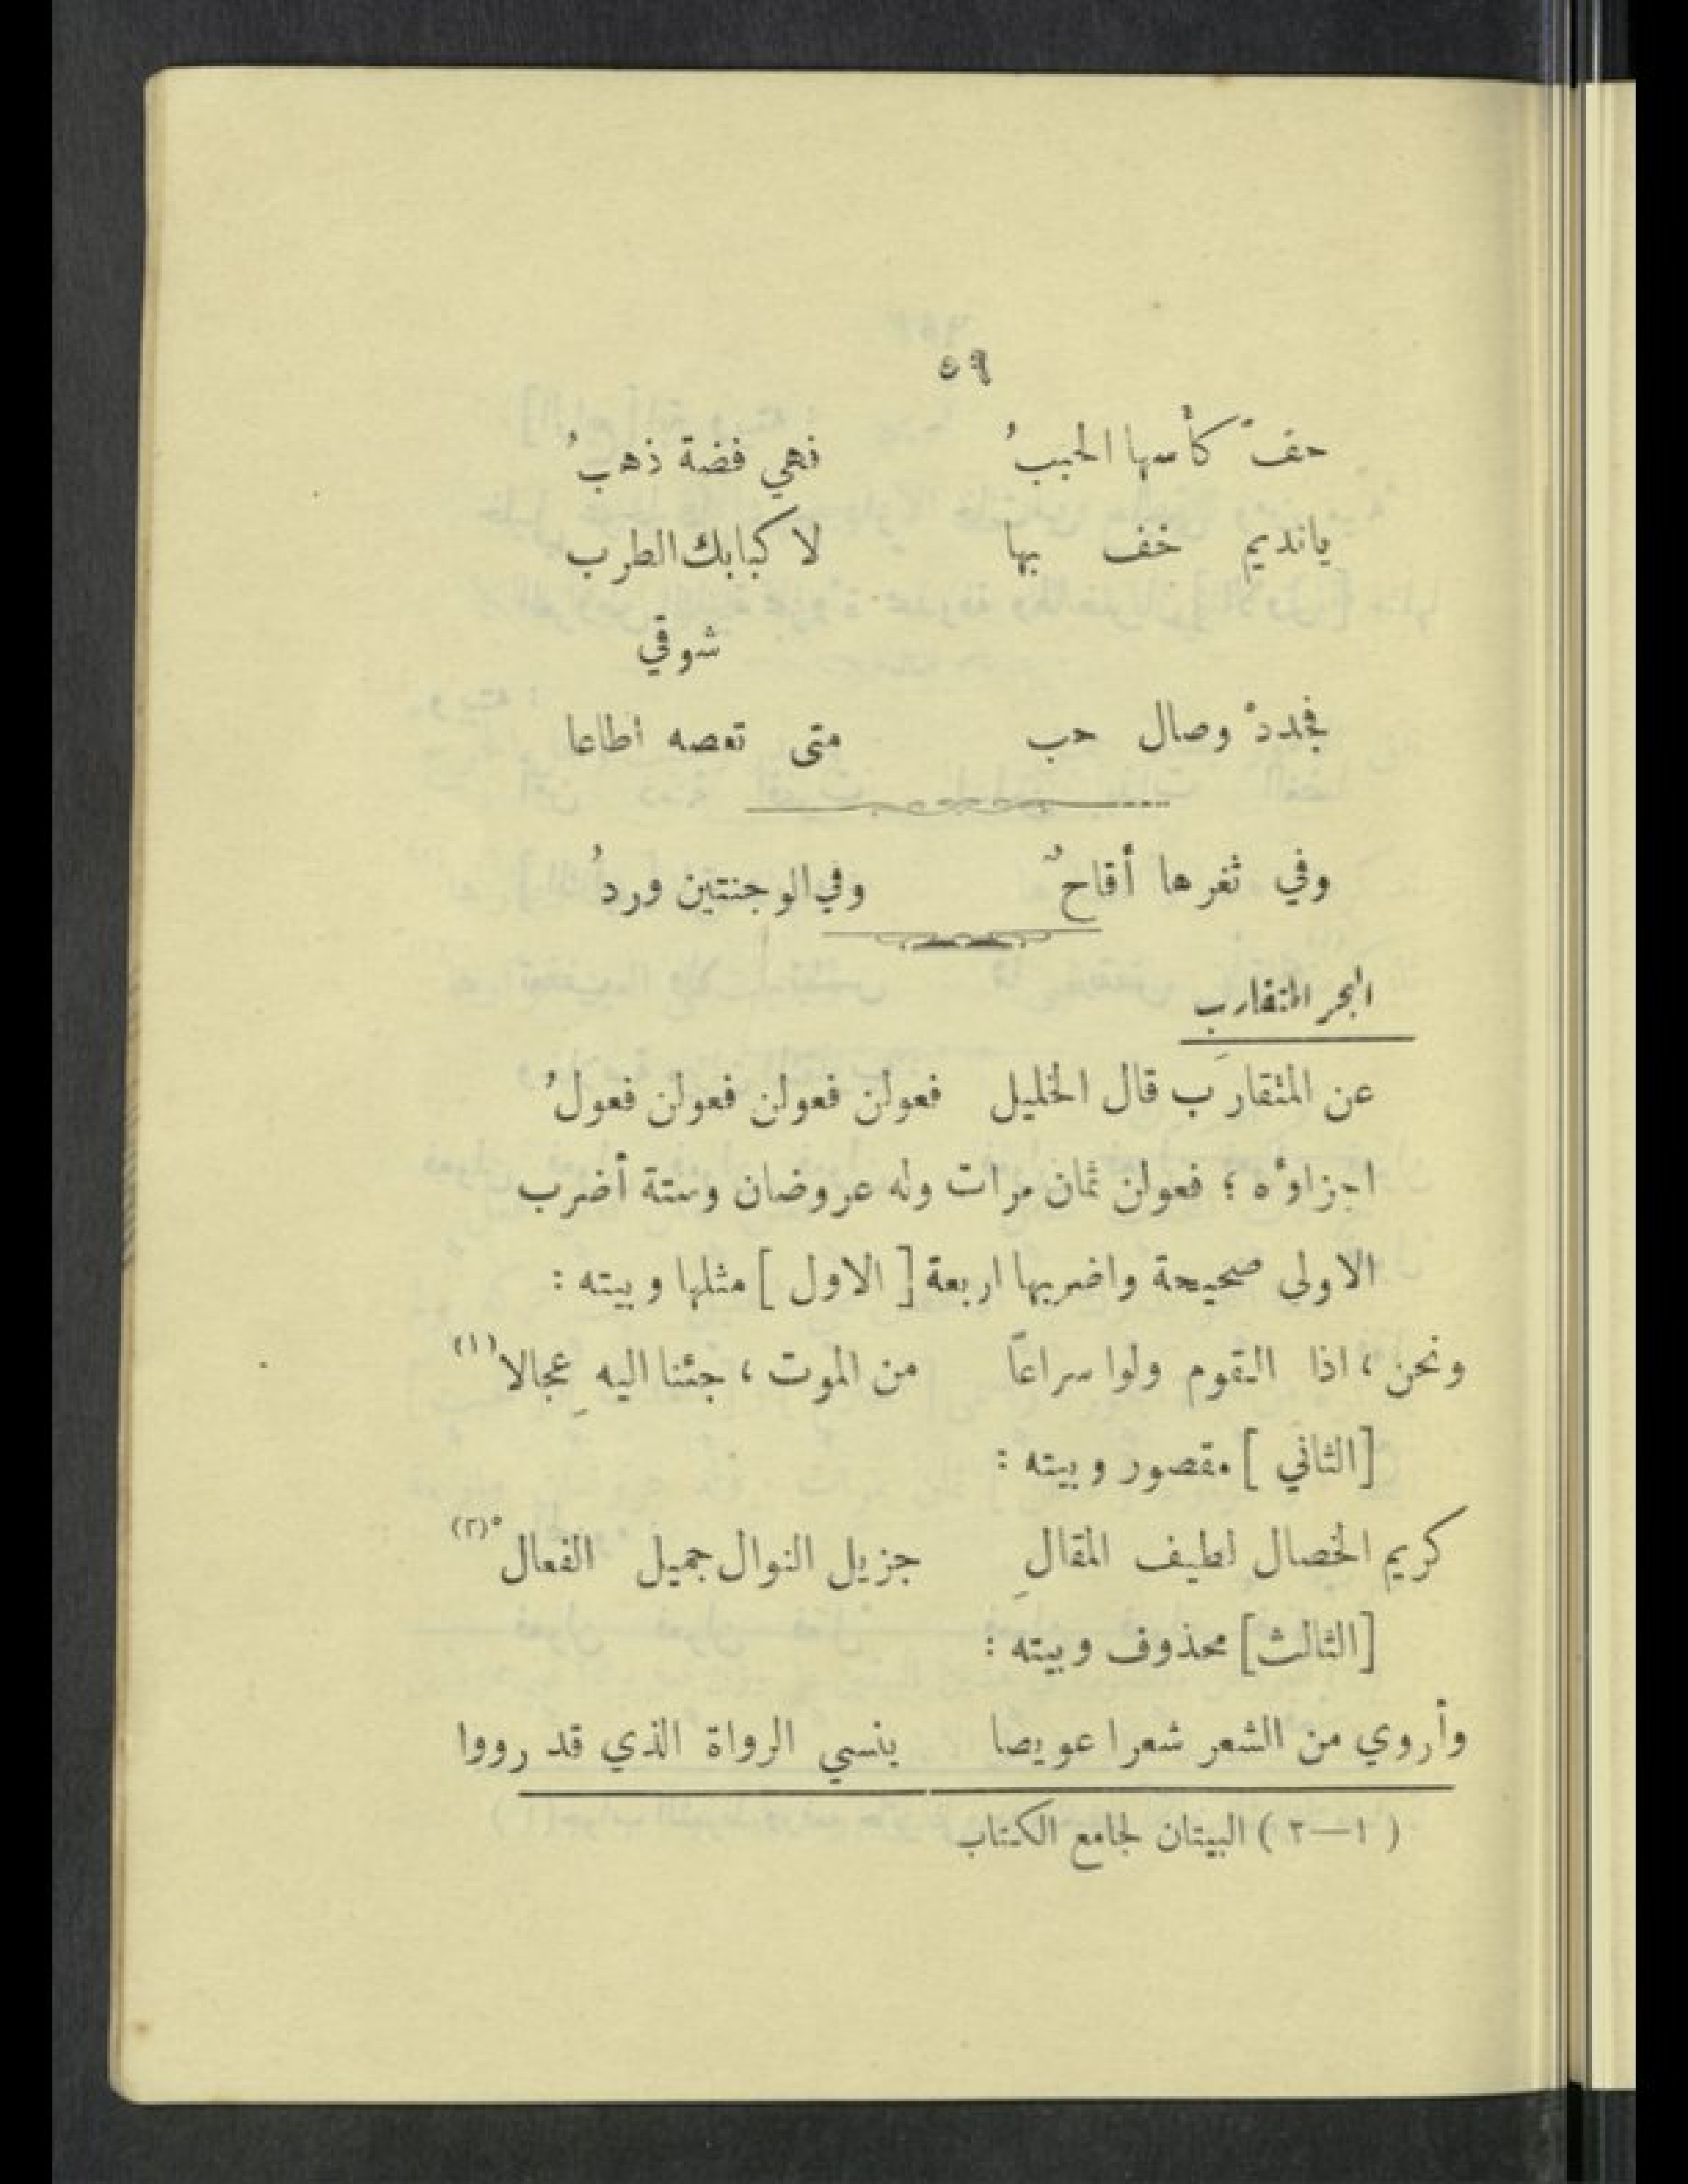 ٥٩
حفّ كأسها الحببُ فهي فضة ذهبُ
يانديم خف بها لا كبابك الطرب
شوقي
فجددْ وصال حب متى تعصه أطاعا
وفي ثغرها أقاحٌ وفي الوجنتين وردُ
البحر المتقارب
عن المتقارَب قال الخليل فعولن فعولن فعولن فعولُ
اجزاؤه ؛ فعولن ثمان مرات وله عروضان وستة أضرب
الاولى صحيحة واضربها اربعة [ الاول ] مثلها وبيته :
ونحن ، اذا القوم ولوا سراعاً من الموت ، جئنا اليه عِجالا (١)
[الثاني ] مقصور وبيته :
كريم الخصال لطيف المقالِ جزيل النوال جميل الفعالْ (٢)
[الثالث] محذوف وبيته :
وأروي من الشعر شعرا عويصا ينسي الرواة الذي قد رووا
( ١—٢ ) البيتان لجامع الكتاب